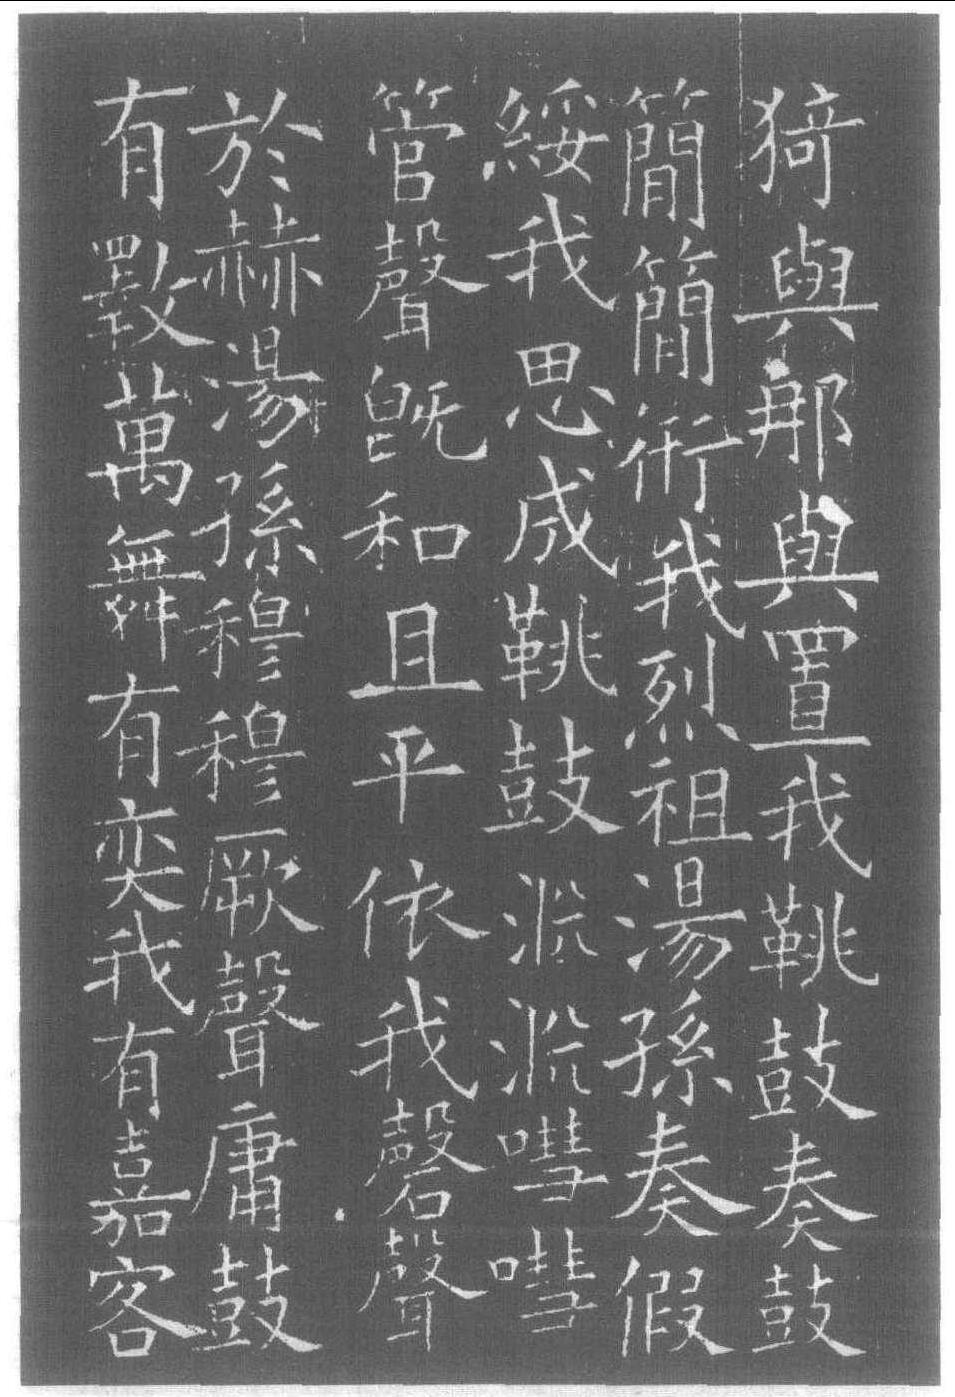 猗與那與置我鞉鼓奏鼓
簡簡衎我烈祖湯孫奏假
綏我思成鞉鼓淵淵嘒嘒
管聲既和且平依我磬聲
於赫湯孫穆穆厥聲庸鼓
有斁萬舞有奕我有嘉客